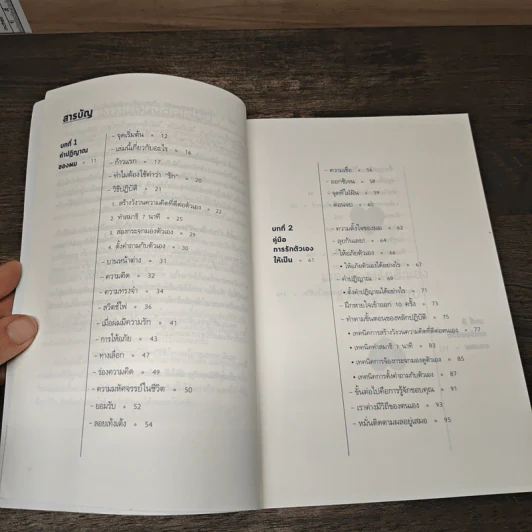 สารบัญ
บทที่ 1
คำปฏิญาณ
ของผม • 11
- จุดเริ่มต้น • 12
- เล่มนี้เกี่ยวกับอะไร • 16
- ก้าวแรก • 17
- ทำไมต้องใช้คำว่า "รัก" • 20
- วิธีปฏิบัติ • 21
1. สร้างวังวนความคิดที่ดีต่อตัวเอง • 22
2. ทำสมาธิ 7 นาที • 25
3. ส่องกระจกมองตัวเอง • 29
4. ตั้งคำถามกับตัวเอง • 30
- บานหน้าต่าง • 31
- ความคิด • 32
- ความทรงจำ • 34
- สวิตช์ไฟ • 36
- เมื่อผมมีความรัก • 41
- การให้อภัย • 43
- ทางเลือก • 47
- ร่องความคิด • 49
- ความมหัศจรรย์ในชีวิต • 50
- ยอมรับ • 52
- ลอยเท้งเต้ง • 54
- ความเชื่อ • 56
- ออกซิเจน • 58
- จุดที่ไม่ฝืน • 59
- ตอนจบ • 60
บทที่ 2
คู่มือ
การรักตัวเอง
ให้เป็น • 61
- ความตั้งใจของผม • 62
- ลุบกันเลยก • 64
- ให้อภัยตัวเอง • 66
• ให้อภัยตัวเองได้อย่างไร • 67
- คำปฏิญาณ • 69
• ตั้งคำปฏิญาณได้อย่างไร • 71
- ฝึกหายใจเข้าออก 10 ครั้ง • 73
- ทำตามขั้นตอนของหลักปฏิบัติ • 75
• เทคนิคการสร้างวังวนความคิดที่ดีต่อตนเอง • 77
• เทคนิคทำสมาธิ 7 นาที • 83
• เทคนิคการจ้องกระจกมองดูตัวเอง • 85
• เทคนิคการตั้งคำถามกับตัวเอง • 87
- ขั้นต่อไปคือการรู้จักขอบคุณ • 91
- เราต่างมีวิถีของตนเอง • 93
- หมั่นติดตามผลอยู่เสมอ • 95